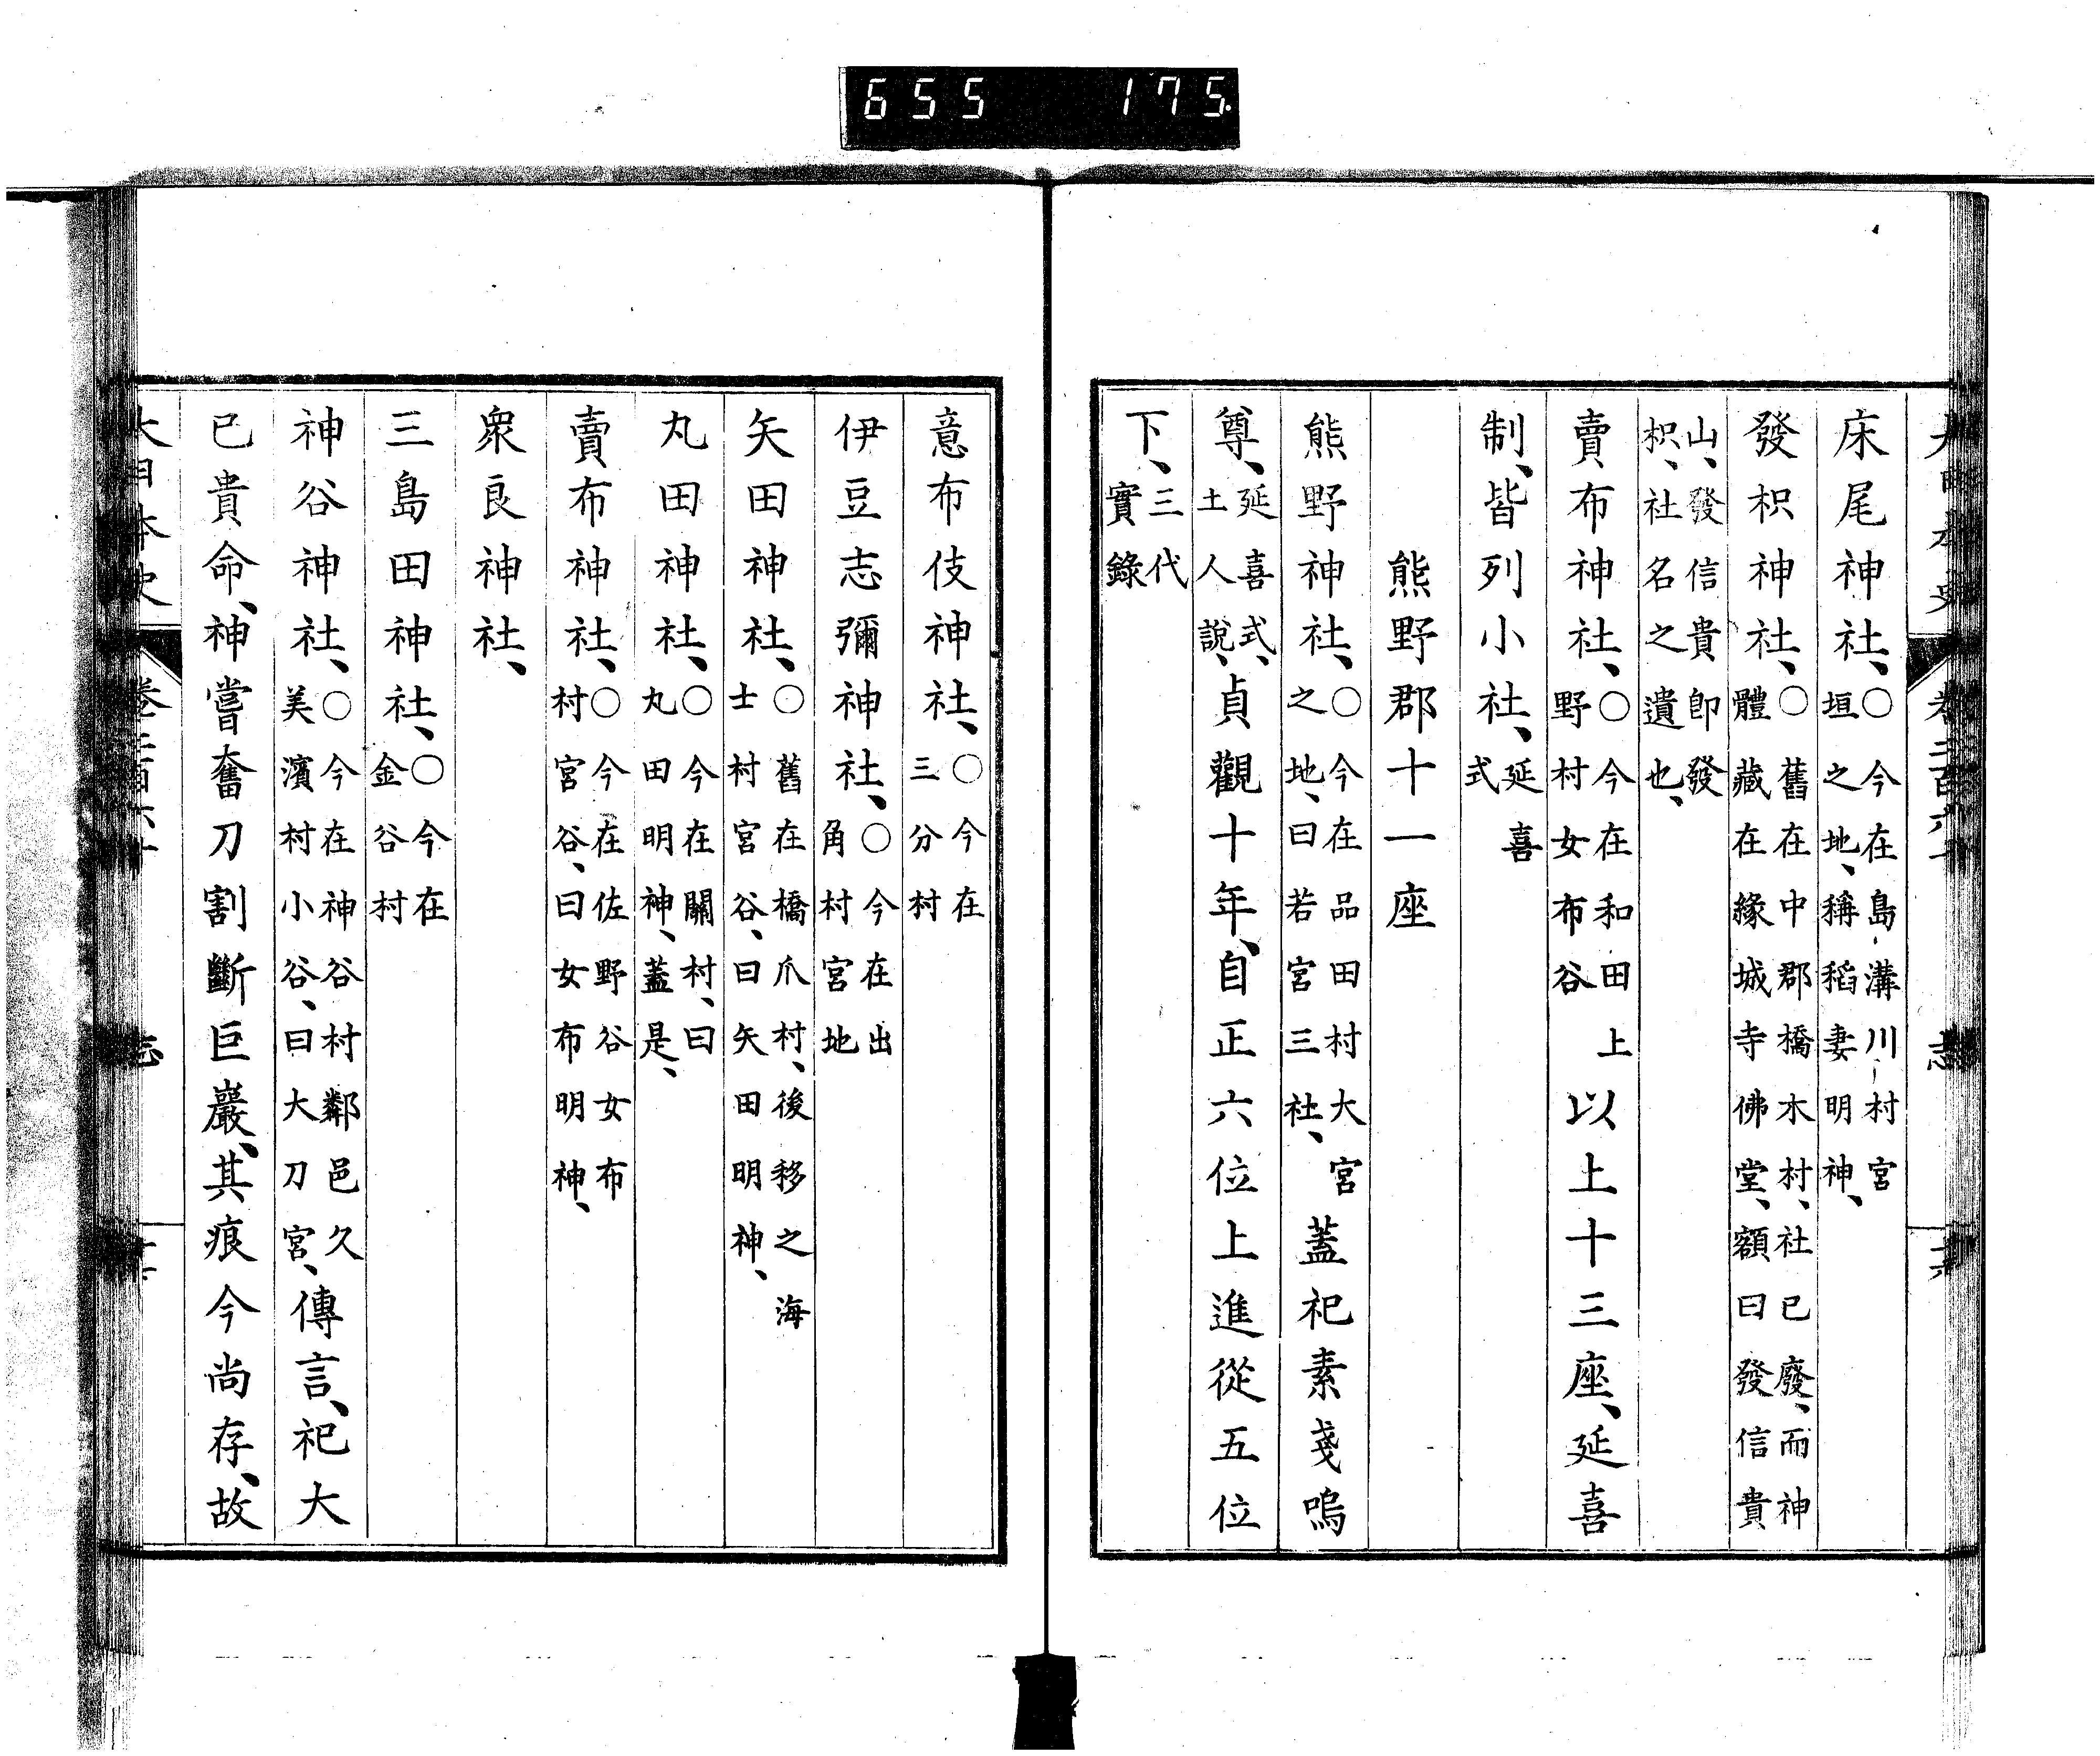 655 175
床尾神社、○今在島溝川村宮垣之地、稱稻妻明神、
發枳神社、○舊在中郡橋木村、社已廢、而神體藏在緣城寺佛堂、額曰發信貴
山、發信貴卽發枳、社名之遺也、
賣布神社、○今在和田上野村女布谷以上十三座、延喜
制、皆列小社、延喜式
熊野郡十一座
熊野神社、○今在品田村大宮之地、曰若宮三社、蓋祀素戔嗚
尊、延喜式、土人說、貞觀十年、自正六位上進從五位
下、三代實錄
意布伎神社、○今在三分村
伊豆志彌神社、○今在出角村宮地
矢田神社、○舊在橋爪村、後移之海士村宮谷、曰矢田明神、
丸田神社、○今在關村、曰丸田明神、蓋是、
賣布神社、○今在佐野谷女布村宮谷、曰女布明神、
衆良神社、
三島田神社、○今在金谷村
神谷神社、○今在神谷村鄰邑久美濱村小谷、曰大刀宮、傳言、祀大
已貴命、神嘗奮刀割斷巨巖、其痕今尚存、故
大日本史 志